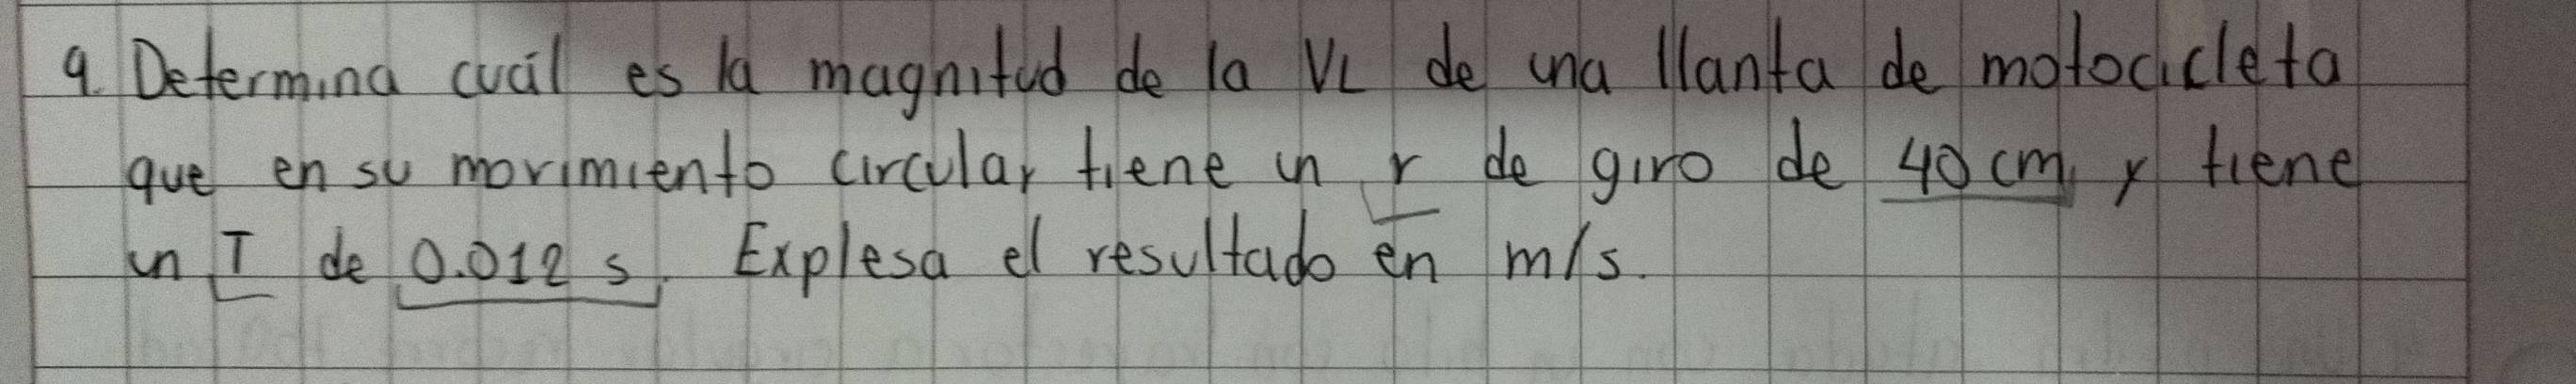 9. Determina cuál es la magnitud de la VL de una llanta de motocicleta
que en su movimiento circular tiene un r de giro de 40 cm y tiene
un T de 0.012 s. Explesa el resultado en m/s.